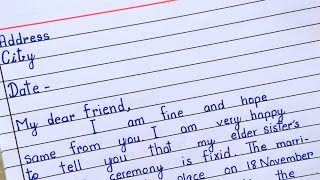 Address
City
Date -
My dear friend,
I am fine and hope
same from you I am very happy
to tell you that my elder sister's
ceremony is fixid. The marri-
place on 18 November
the